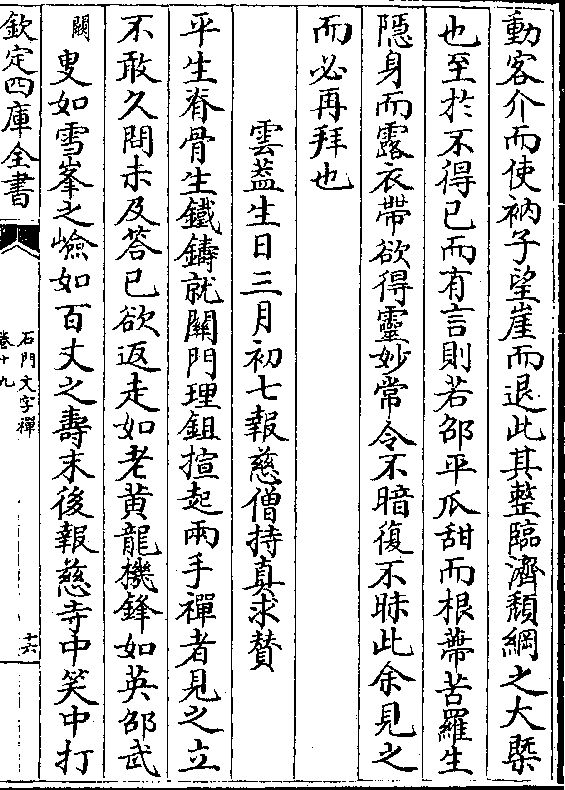 動客介而使衲子望崖而退此其整臨濟頽綱之大槩
也至於不得已而有言則若邵平瓜甜而根蔕苦羅生
隠身而露衣帶欲得靈妙常令不暗復不昧此余見之
而必再拜也
雲蓋生日三月初七報慈僧持真求賛
平生脊骨生鐵鑄就關門理鉏揎起兩手禪者見之立
不敢久問未及答已欲返走如老黄龍機鋒如英邵武
闕叟如雪峯之嶮如百丈之壽末後報慈寺中笑中打
欽定四庫全書
石門文字禪
卷十九
十六